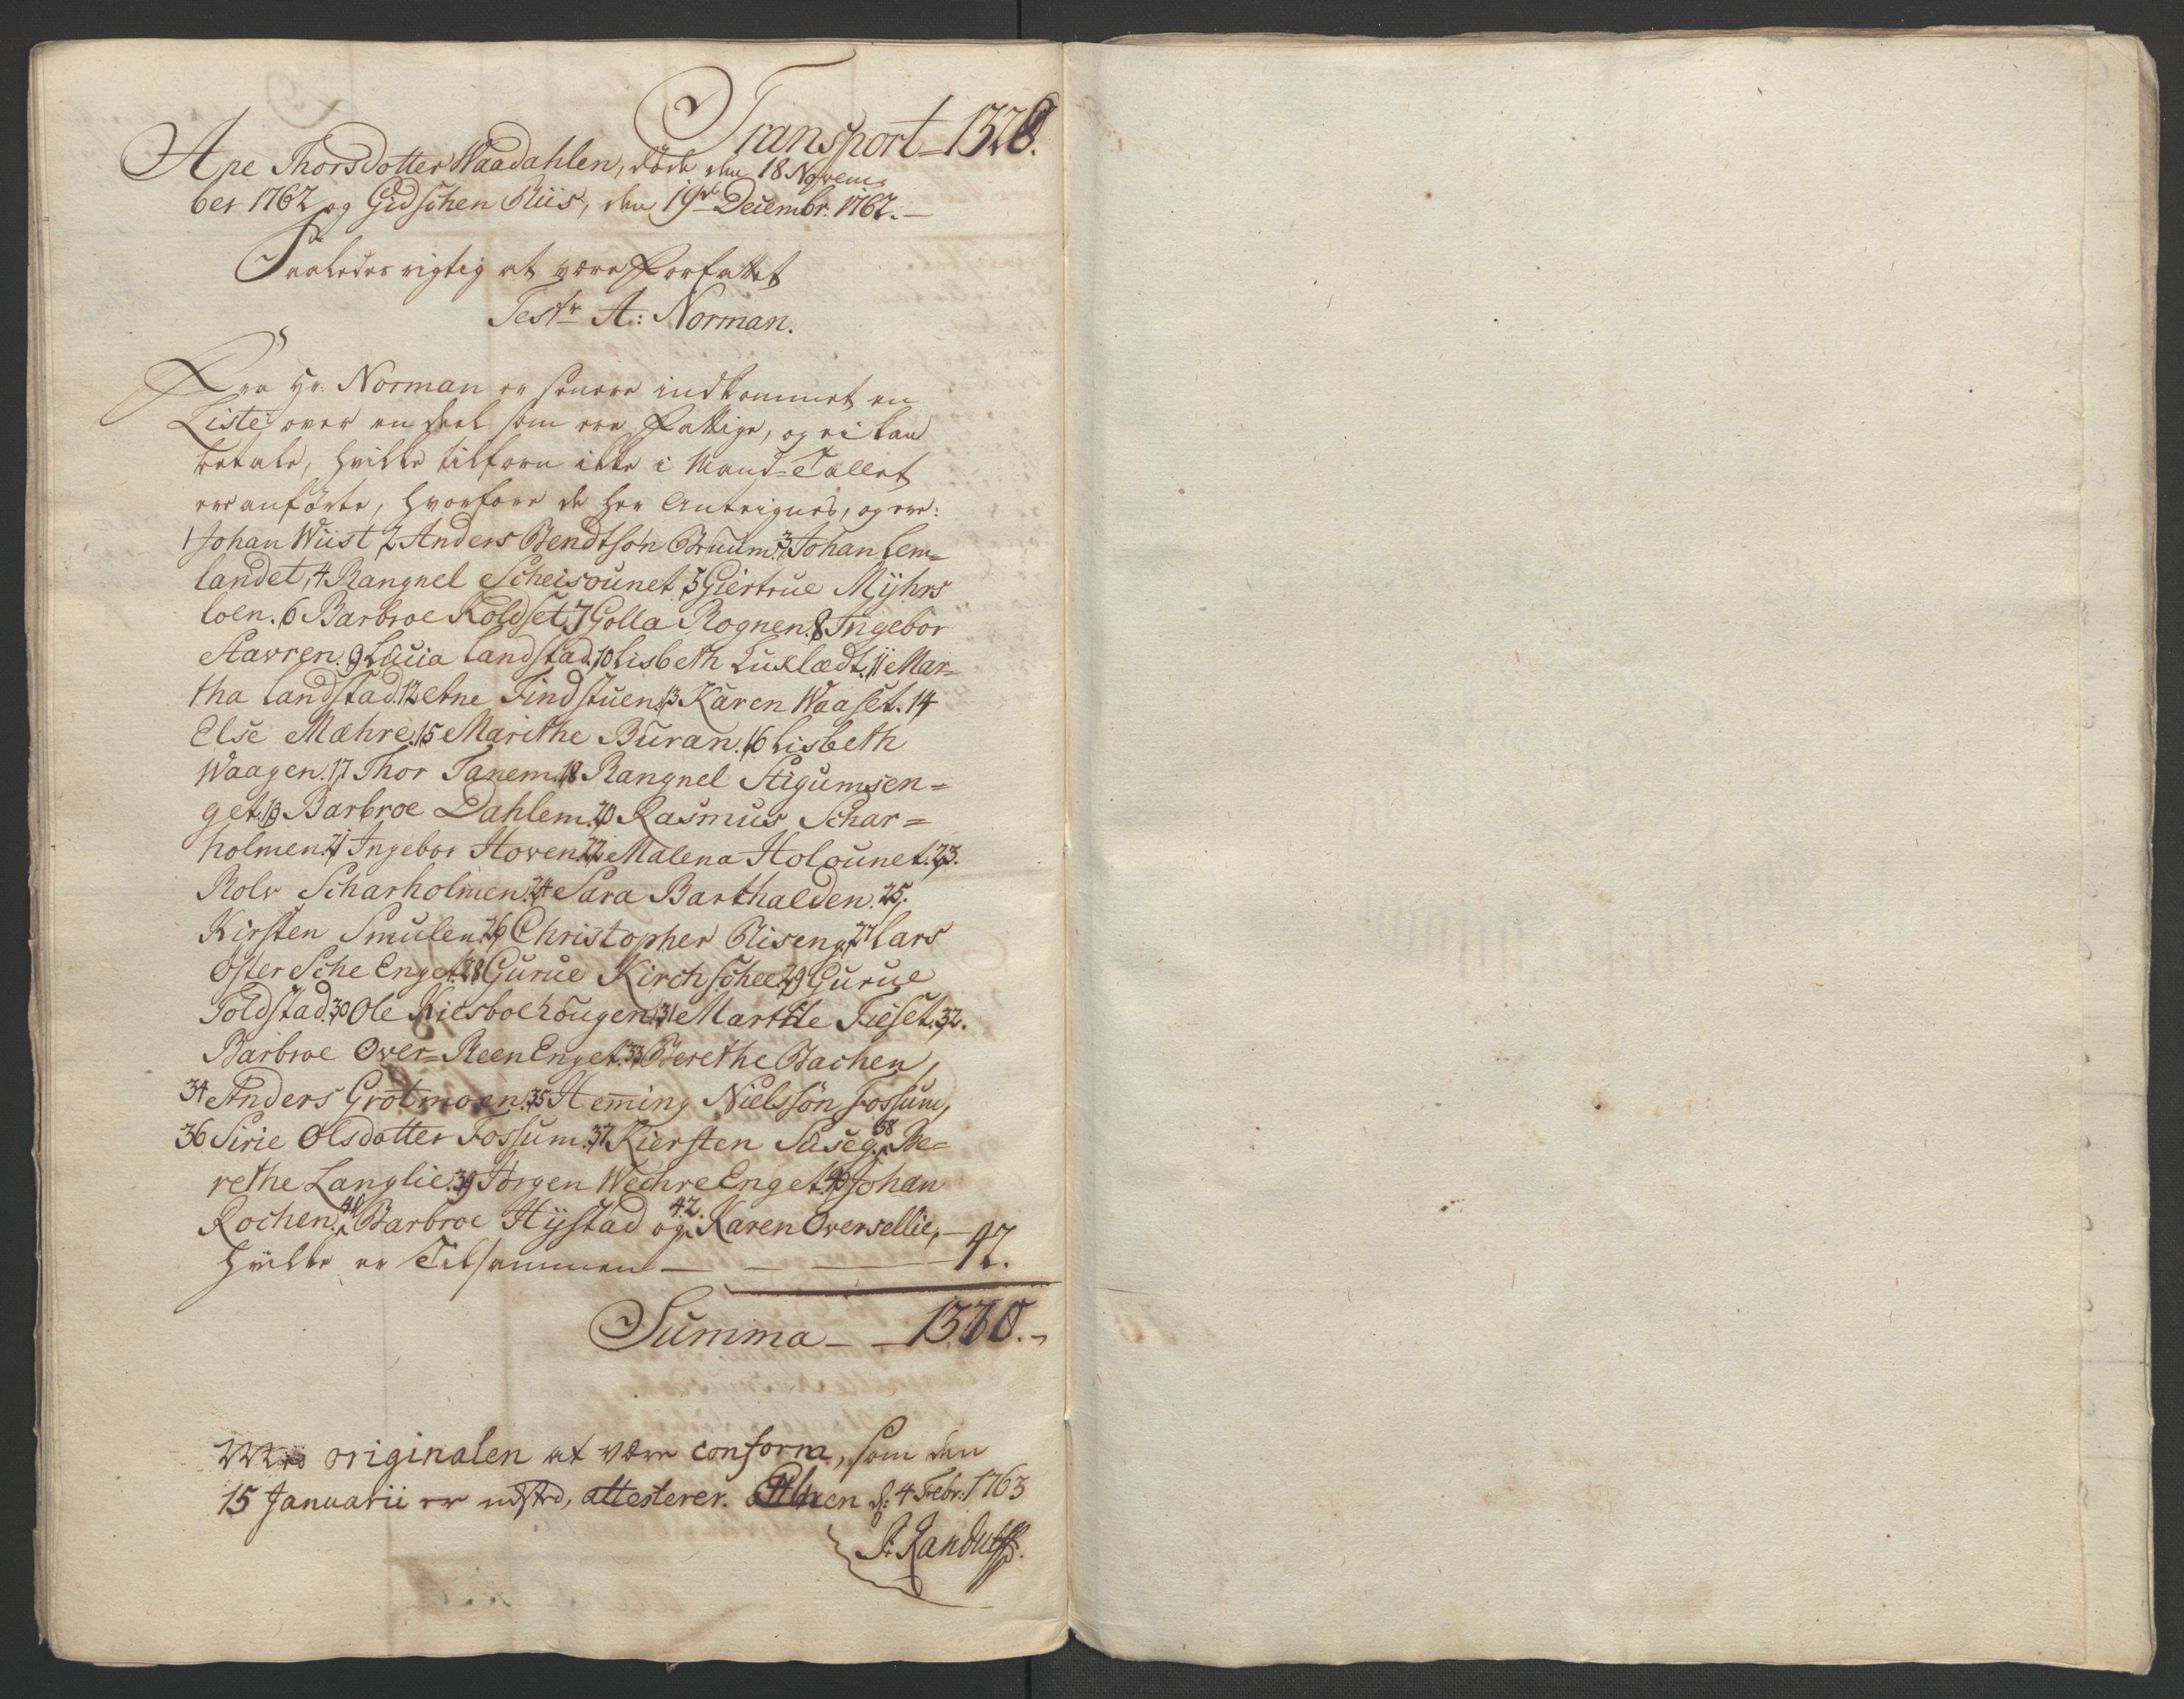 Transport - 1328.
Ane Thorsdotter Waadahlen, døde den 18 Novem-
ber 1762 og Gidschen Riis, den 19de Decembr. 1762. -
Saaledes rigtig at være forfattet
Test. A: Norman.
Fra Hr. Norman er senere indkommet en
Liste over en deel som ere Fattige, og ei kand
betale, hvilke tilforn ikke i Mand-Tallet
ere anførte, hvorfore de her Anteignes, og ere:
1 Johan Wiist, 2 Anders Bendtsøn Bruum, 3 Johan Lem-
landet, 4 Rangnel Scheisounet, 5 Giertrue Mÿhrs
loen. 6 Barbroe Koldset, 7 Golla Rognen. 8 Ingebor
Stavren. 9 Lucia Landstad, 10 Lisbeth Luxlædt, 11 Mar-
tha Landstad. 12 Ane Findstuen. 13 Karen Waaset. 14
Else Mæhre. 15 Marithe Buran. 16 Lisbeth
Waagen. 17 Thor Tanem. 18 Rangnel Stigumsen-
get. 19 Barbroe Dahlem. 20 Rasmus Schar-
holmen. 21 Ingebor Hoven. 22 Malena Holounet. 23.
Rolv Scharholmen. 24 Sara Barthalden. 25.
Kirsten Smulen. 26 Christopher Riseng, 27 Lars
Øster Sche Enget. 28 Gurue Kirchschee. 29 Gurue
Toldstad. 30 Ole Kiesboehougen. 31 Marthe Fieset. 32.
Barbroe Over-Reen Enget. 33 Berethe Bachen,
34 Anders Grøtmoen. 35 Heming Nielssøn Fossum,
36 Sirie Olsdotter Fossum. 37 Kiersten Suseg. 38 Be-
rethe Langlie. 39 Jørgen Wechre Enget. 40 Johan
Rochen. 41 Barbroe Hÿstad og 42. Karen Oversellie,
hvilke er Tilsammen - - - 42.
Summa - - 1370. -
originalen at være conform, som den
15 Januarii er udstæd, attesterer. d: 4 Febr: 1763
J. Randulff.